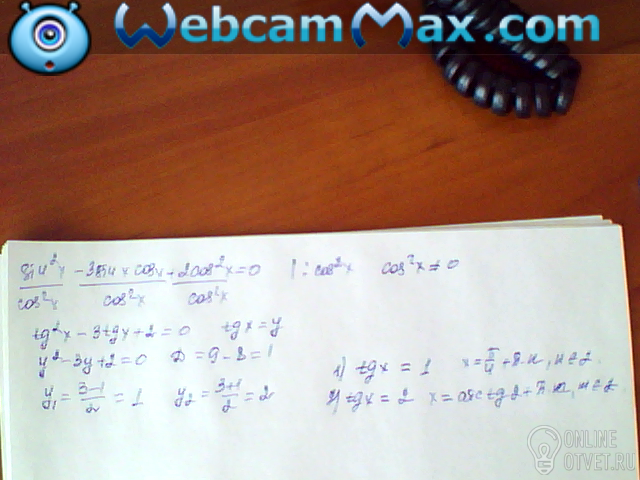 WebcamMax.com
sin²x/cos²x - 3sinx cosx/cos²x + 2cos²x/cos²x = 0 | : cos²x cos²x ≠ 0
tg²x - 3tgx + 2 = 0 tgx = y
y² - 3y + 2 = 0 D = 9 - 8 = 1
y₁ = (3-1)/2 = 1 y₂ = (3+1)/2 = 2
1) tgx = 1 x = π/4 + πn, n∈z.
2) tgx = 2 x = arctg2 + πn, n∈z.
ONLINE
OTVET.RU